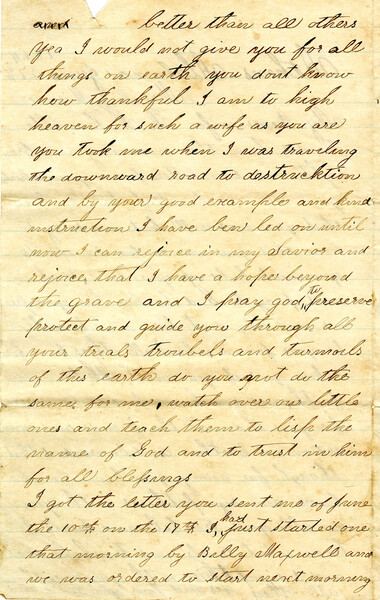 better than all others
Yea I would not give you for all
things on earth you dont know
how thankful I am to high
heaven for such a wife as you are
you took me when I was traveling
the downward road to destrucktion
and by your good example and kind
instruction I have ben led on until
now I can rejoice in my Savior and
rejoice that I have a hope beyond
the grave and I pray god to preserve
protect and guide you through all
your trials troubels and turmoils
of this earth do you not do the
same for me, watch over our little
ones and teach them to lisp the
name of God and to trust in him
for all blessings
I got the letter you sent me of June
the 10th on the 17th I had just started one
that morning by Billy Maxwell and
we was ordered to start next morning